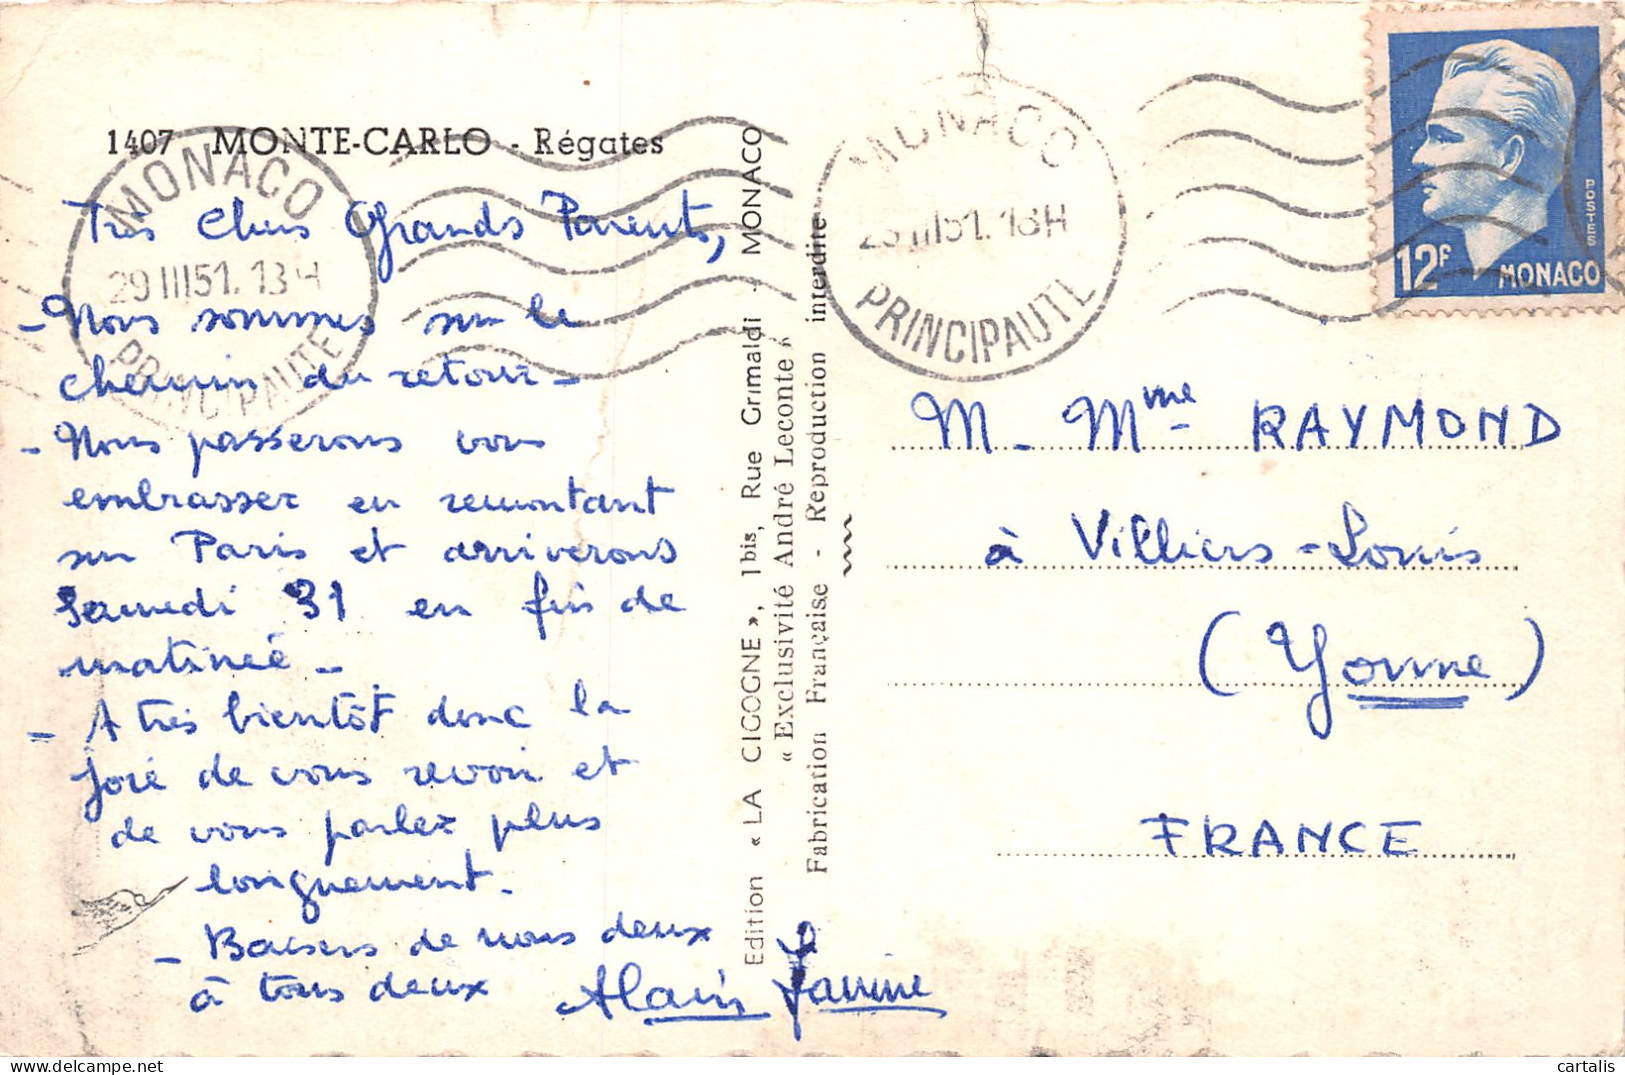 1407 MONTE-CARLO - Régates
MONACO
29 III 51. 13H
PRINCIPAUTE
Très Chers Grands Parents,
- Nous sommes sur le
chemin du retour -
- Nous passerons vous
embrasser en remontant
sur Paris et arriverons
Samedi 31 en fin de
matinée -
- A très bientôt donc la
joie de vous revoir et
de vous parler plus
longuement -
- Baisers de nous deux
à tous deux Alain Janine
Edition « LA CIGOGNE », 1 bis, Rue Grimaldi - MONACO
« Exclusivité André Leconte »
Fabrication Française - Reproduction interdite
MONACO
III 51. 13H
PRINCIPAUTE
POSTES
12F MONACO
M. Mme RAYMOND
à Villiers-Louis
(Yonne)
FRANCE
cartalis